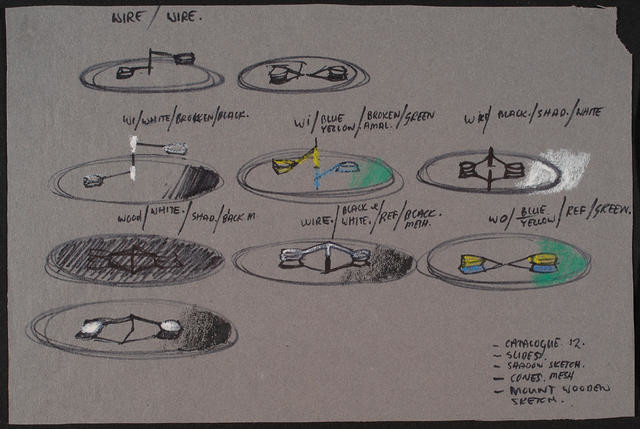 WIRE / WIRE.
W/ WHITE / BROKEN / BLACK.
W/ BLUE YELLOW / BROKEN AMAL. / GREEN
BLACK. / SHAD. / WHITE
WOOD / WHITE. / SHAD /
WIRE. / BLACK & WHITE. / REF / BLACK. MESH.
WO / BLUE YELLOW / REF / GREEN.
- CATALOGUE 12.
- SLIDES.
- SHADOW SKETCH.
- CONES. MESH
- MOUNT WOODEN
SKETCH.